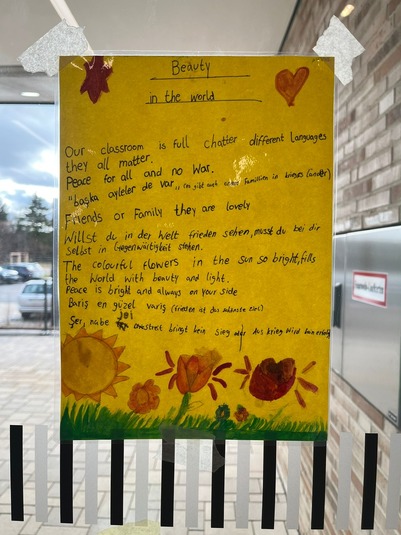 Beauty
in the world
Our classroom is full chatter different languages
they all matter.
Peace for all and no war.
"başka ayleler de var"
Friends or Family they are lovely
Willst du in der Welt frieden sehen, musst du bei dir
selbst in Gegenwärtigkeit stehen.
The colourful flowers in the sun so bright, fills
the world with beauty and light.
Peace is bright and always on your side
Bariş en güzel varış (frieden ist das schönste Ziel)
bringt kein Sieg Aus krieg wird kein